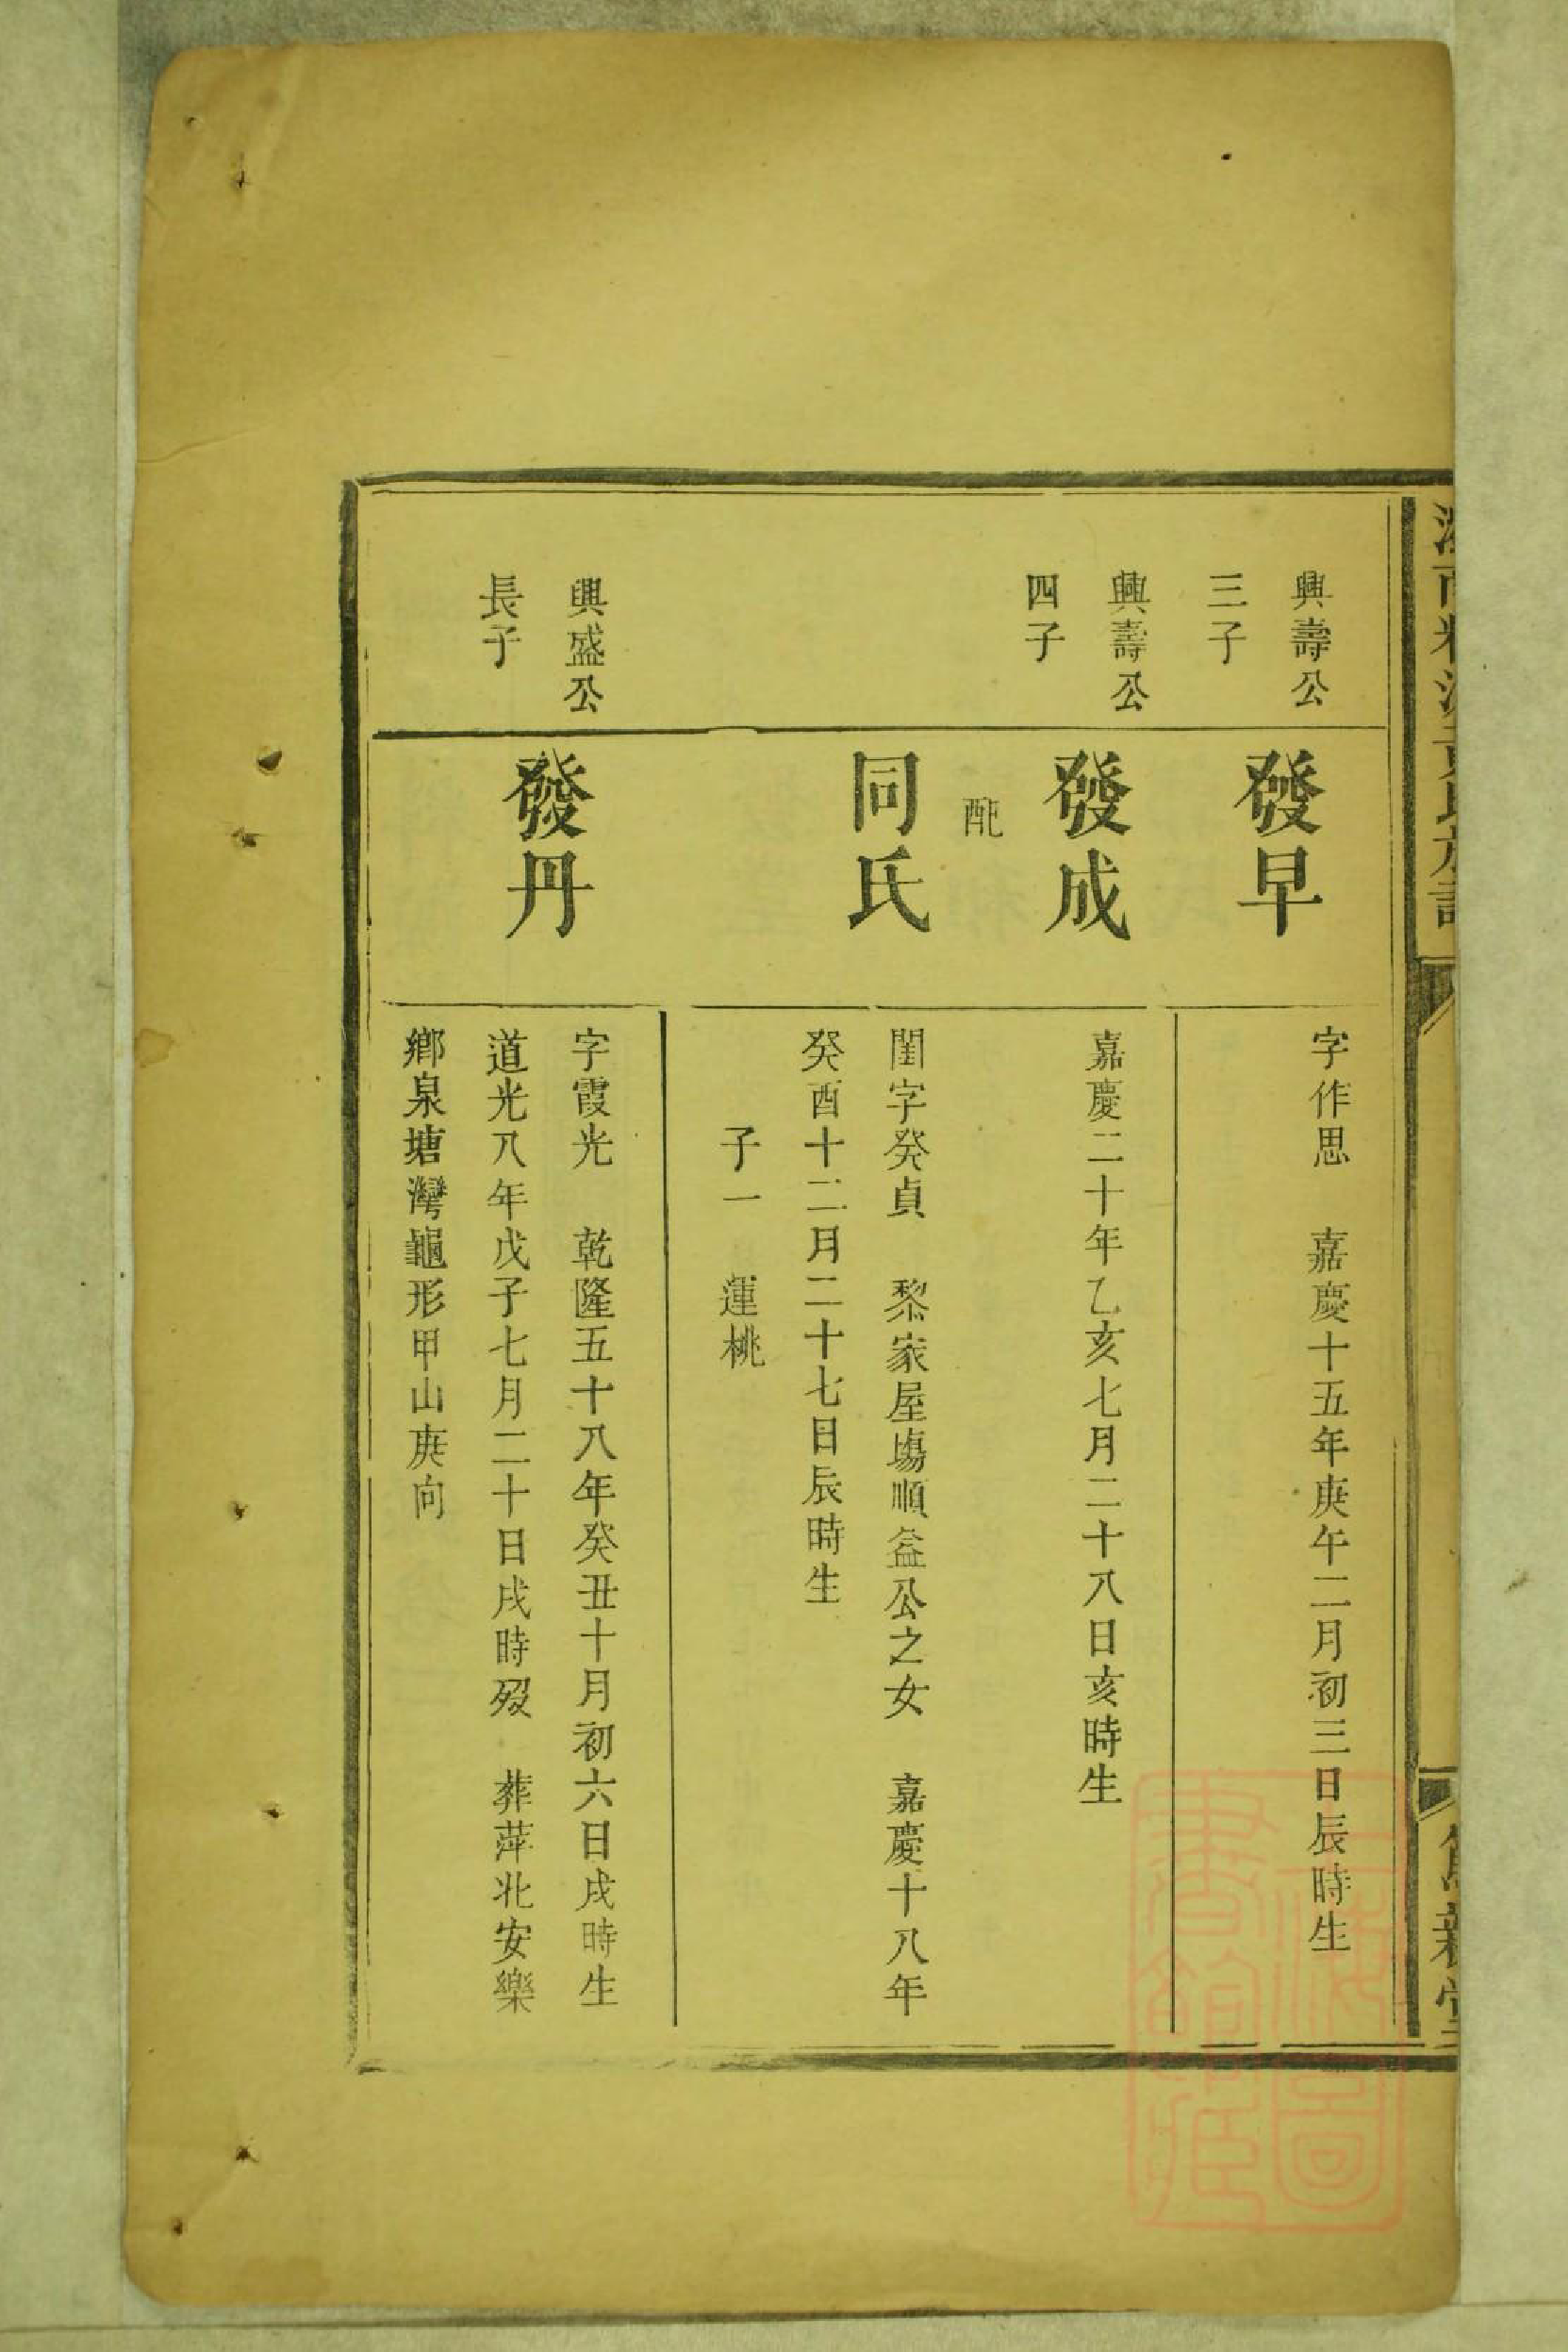 興壽公
三子
發早
字作思 嘉慶十五年庚午二月初三日辰時生
興壽公
四子
發成
嘉慶二十年乙亥七月二十八日亥時生
配
同氏
閨字癸貞 黎家屋塲順益公之女 嘉慶十八年
癸酉十二月二十七日辰時生
子一 運桃
興盛公
長子
發丹
字霞光 乾隆五十八年癸丑十月初六日戌時生
道光八年戊子七月二十日戌時歿 葬萍北安樂
鄉泉塘灣龜形甲山庚向